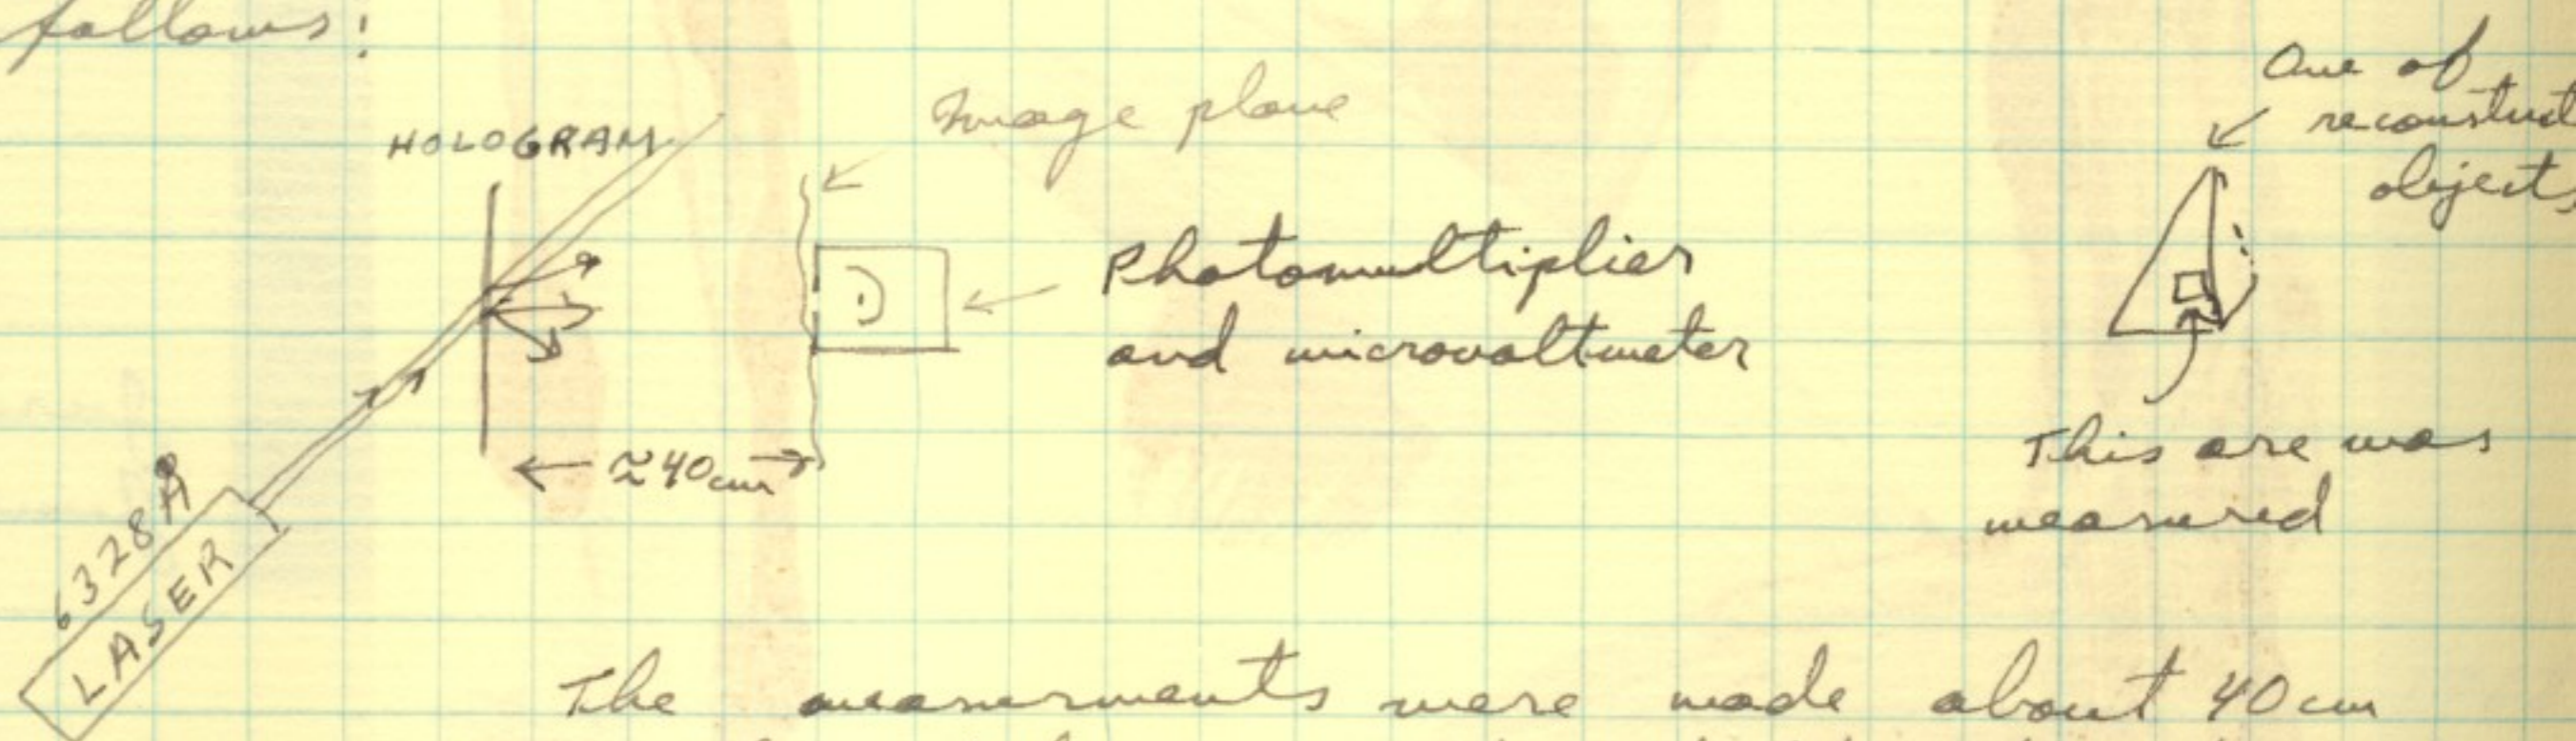 follows:
HOLOGRAM
Image plane
One of
reconstruct
objects
Photomultiplier
and microvoltmeter
≈40cm
6328Å
LASER
This are was
measured
The measurments were made about 40cm